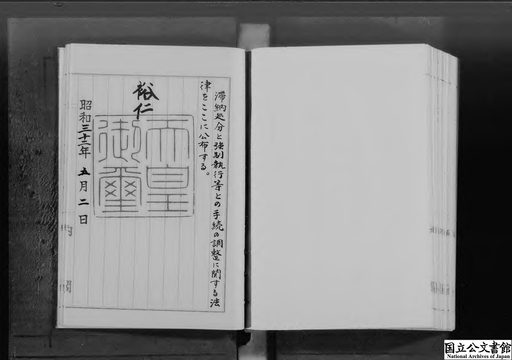 滞納処分と強制執行等との手続の調整に関する法
律をここに公布する。
裕仁
天皇
御璽
昭和三十二年五月二日
国立公文書館
National Archives of Japan